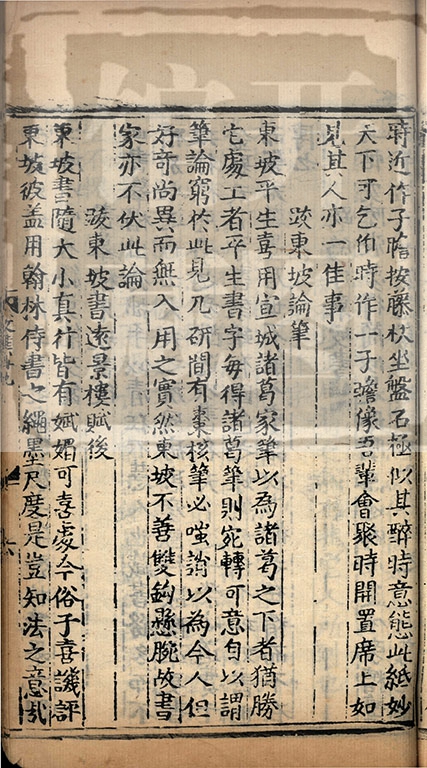 時近作子瞻按藤杖坐盤石極似其醉時意態此紙妙
天下可乞伯時作一子瞻像吾輩會聚時開置席上如
見其人亦一佳事
跋東坡論筆
東坡平生喜用宣城諸葛家筆以為諸葛之下者猶勝
它處工者平生書字每得諸葛筆則宛轉可意自以謂
筆論窮於此見几研間有棗核筆必嗤誚以為今人但
好奇尚異而無入用之實然東坡不善雙鉤懸腕故書
家亦不伏此論
跋東坡書遠景樓賦後
東坡書隨大小真行皆有娬媚可喜處今俗子喜譏評
東坡彼盖用翰林侍書之繩墨尺度是豈知法之意哉